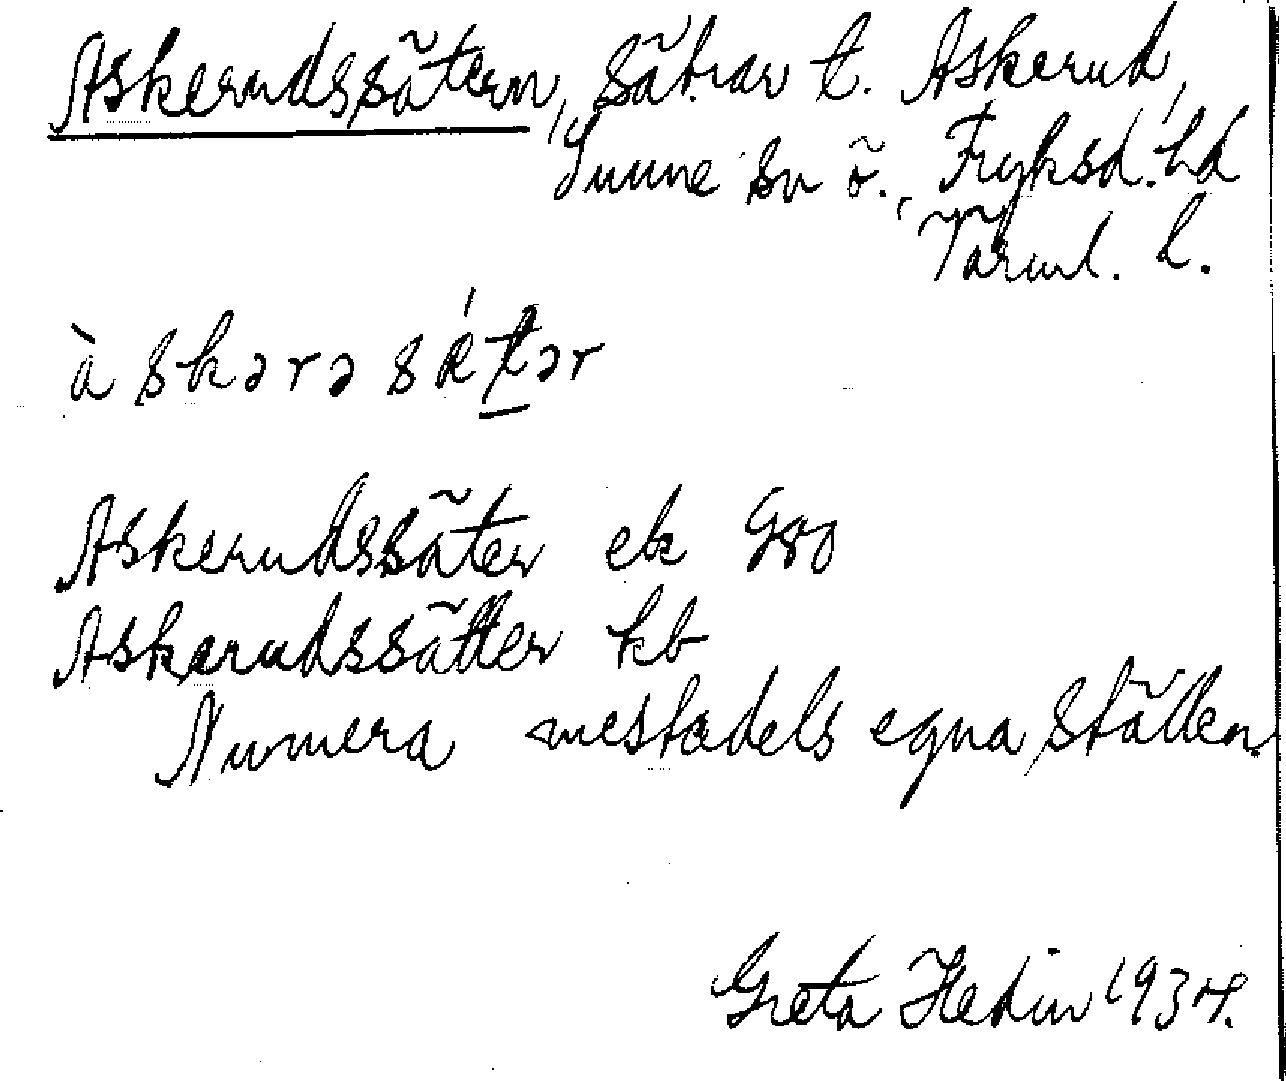 Askerudssätern, sätrar t. Askerud,
Sunne sn ö., Fryksd. hd
Värml. l.
àskərəsǽtər
Askerudssäter ek
Askerudssätter kb
Numera mestadels egna ställen.
Greta Hedin 1934.